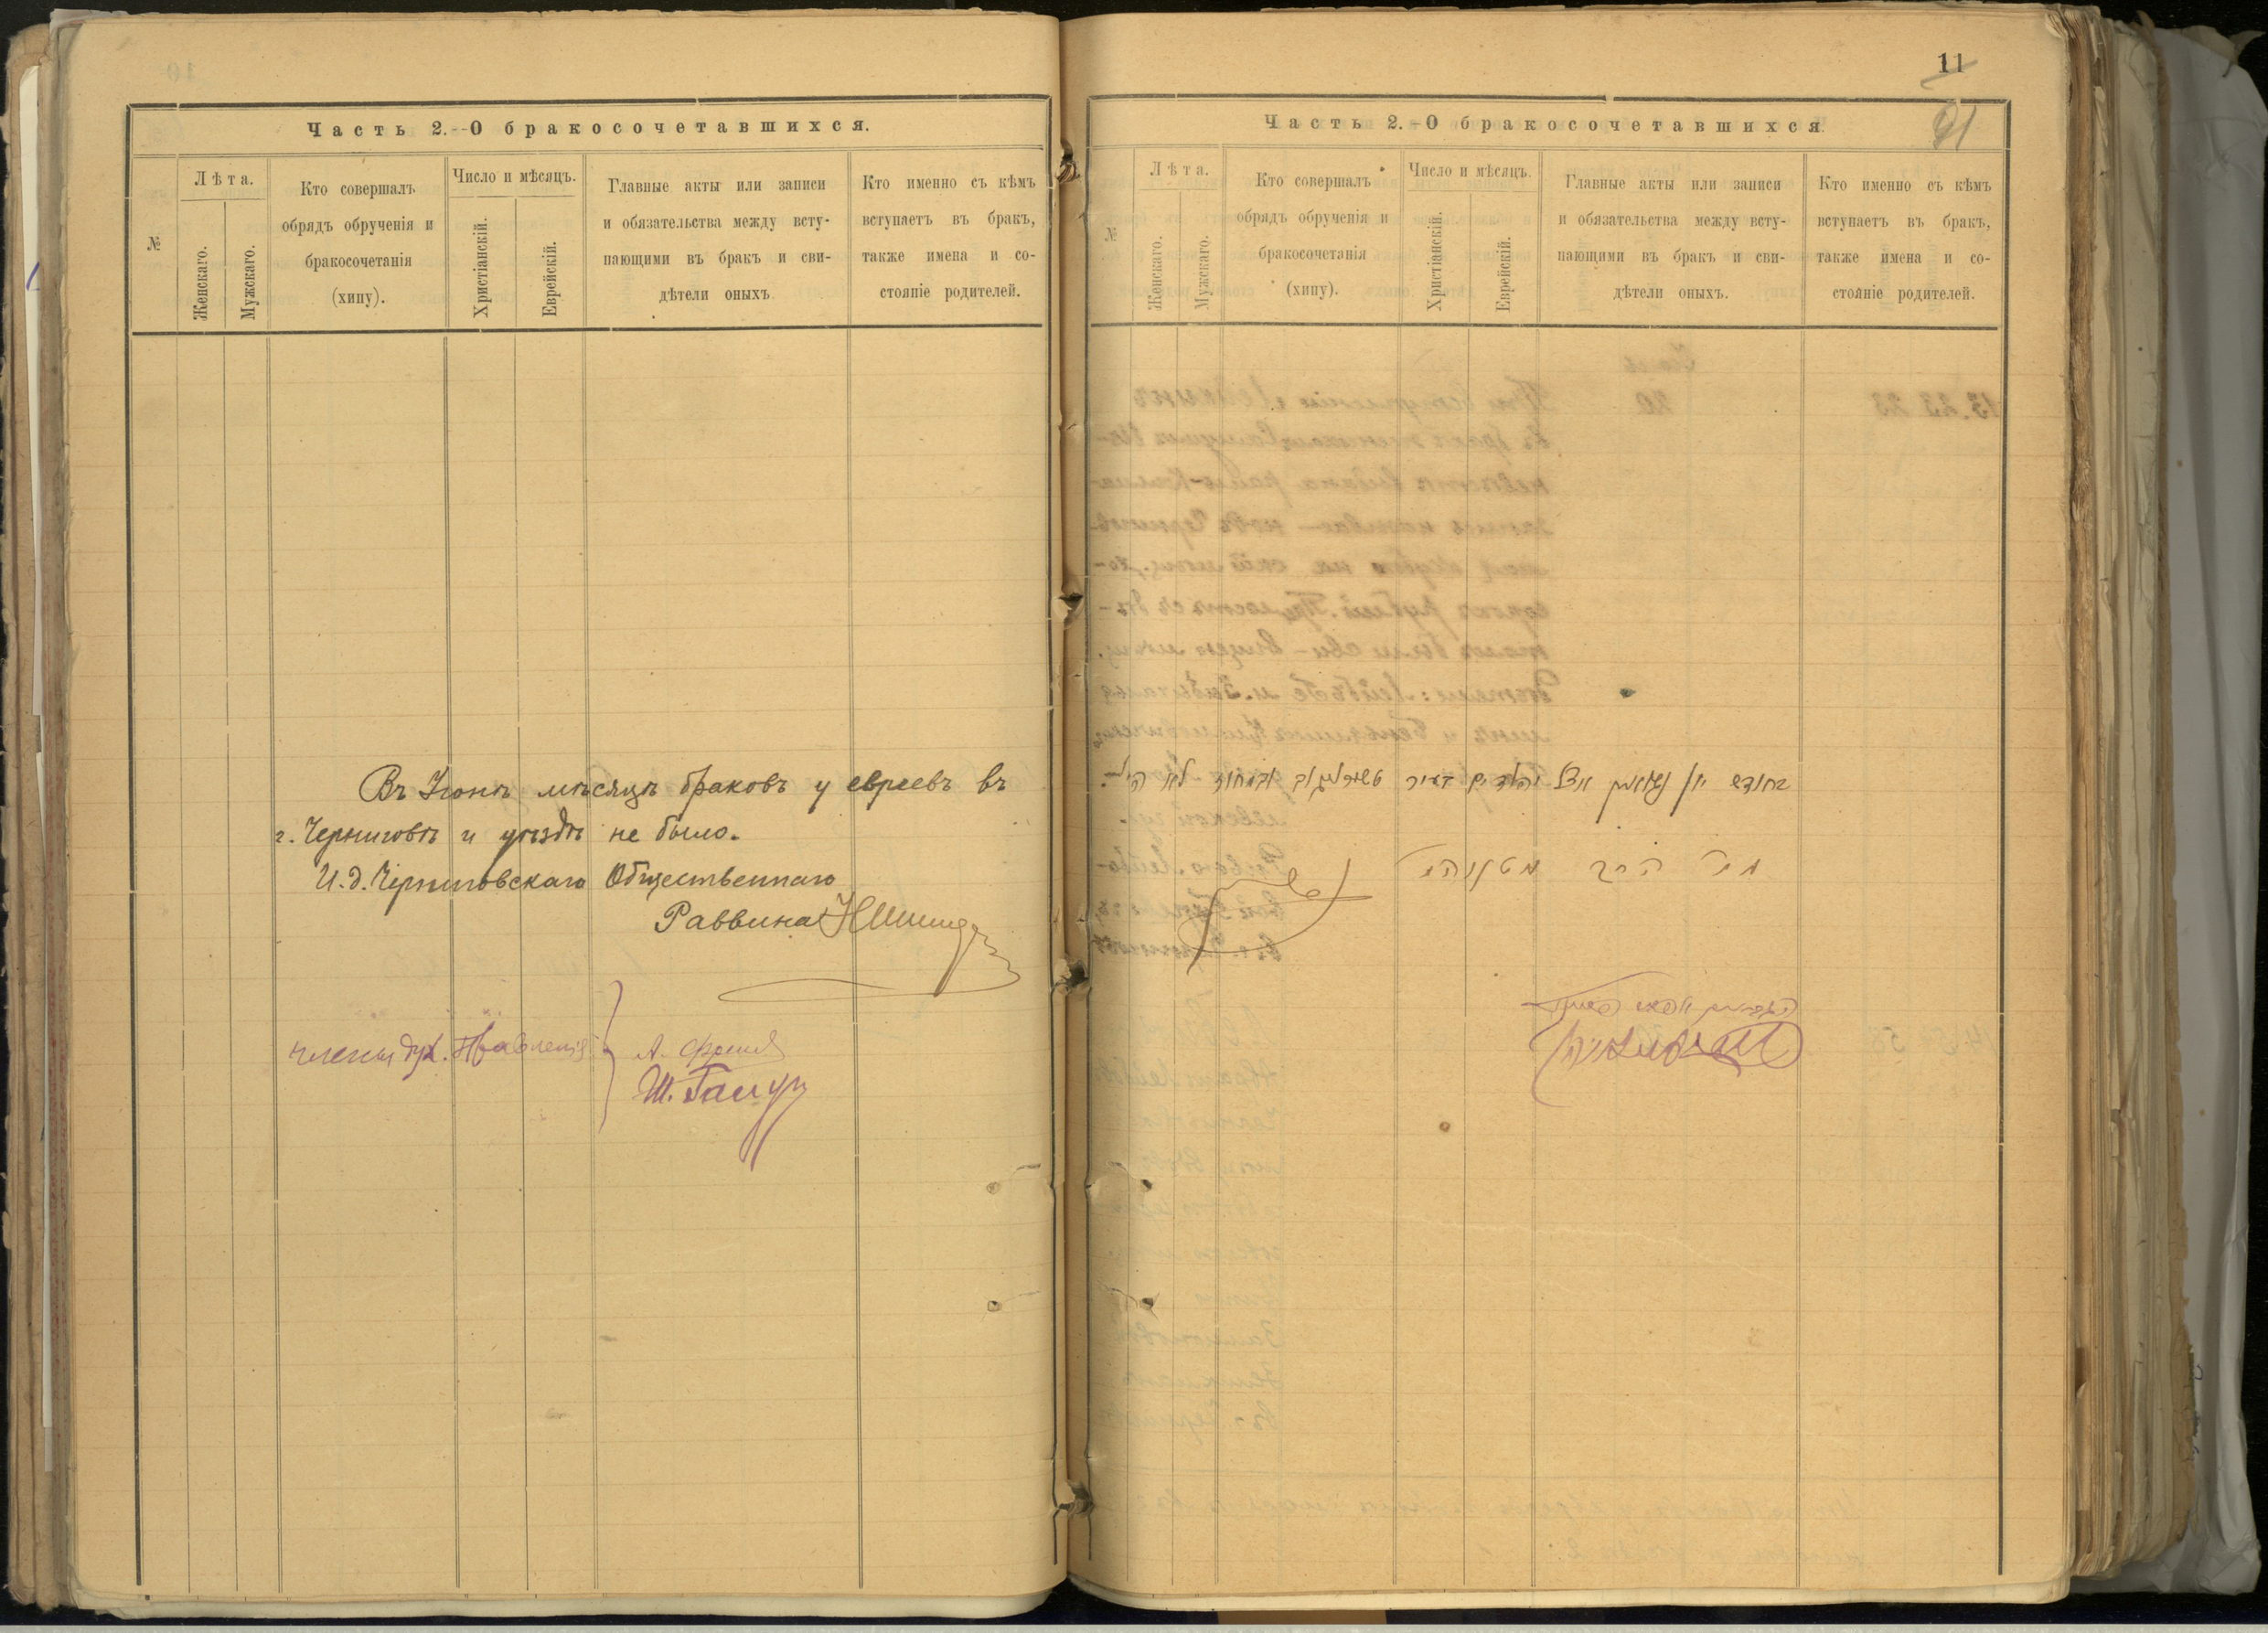 Часть 2.--О бракосочетавшихся.
№
Лѣта.
Женскаго.
Мужскаго.
Кто совершалъ
обрядъ обрученія и
бракосочетанія
(хипу).
Число и мѣсяцъ.
Христіанскій.
Еврейскій.
Главные акты или записи
и обязательства между всту-
пающими въ бракъ и сви-
дѣтели оныхъ
Кто именно съ кѣмъ
вступаетъ въ бракъ,
также имена и со-
стояніе родителей.
Въ Іюнѣ мѣсяцѣ браковъ у евреевъ въ
г. Черниговѣ и уѣздѣ не было.
И.д. Черниговскаго Общественнаго
Раввина
члены дух. Правленія
А.
Ш.
11
91
Часть 2.-О бракосочетавшихся.
№
Лѣта.
Женскаго.
Мужскаго.
Кто совершалъ
обрядъ обрученія и
бракосочетанія
(хипу).
Число и мѣсяцъ.
Христіанскій.
Еврейскій.
Главные акты или записи
и обязательства между всту-
пающими въ бракъ и сви-
дѣтели оныхъ.
Кто именно съ кѣмъ
вступаетъ въ бракъ,
также имена и со-
стояніе родителей.
בחודש יון נשואין אצל יהודים בעיר טשערניגוב ובמחוז לא היו
הרב